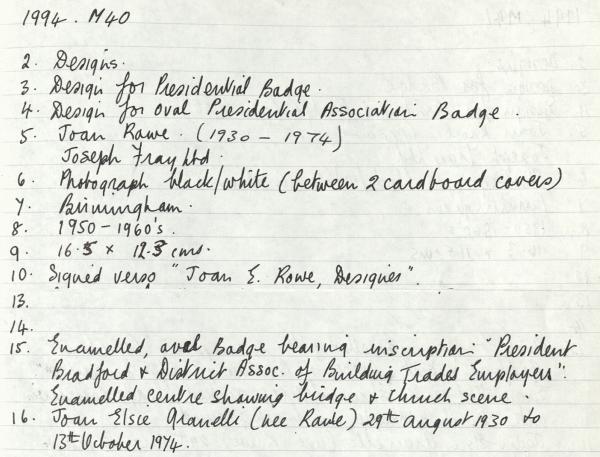 1994. M40
2. Designs.
3. Design for Presidential Badge.
4. Design for oval Presidential Association Badge.
5. Joan Rawe. (1930 - 1974)
Joseph Fray Ltd.
6. Photograph black/white (between 2 cardboard covers)
7. Birmingham.
8. 1950-1960's.
9. 16.5 x 12.3 cms.
10. Signed verso "Joan E. Rowe, Designer".
13.
14.
15. Enamelled, oval Badge bearing inscription "President
Bradford & District Assoc. of Building Trades Employers".
Enamelled centre showing bridge & church scene.
16. Joan Elsie Granelli (nee Rawe) 29th August 1930 to
13th October 1974.